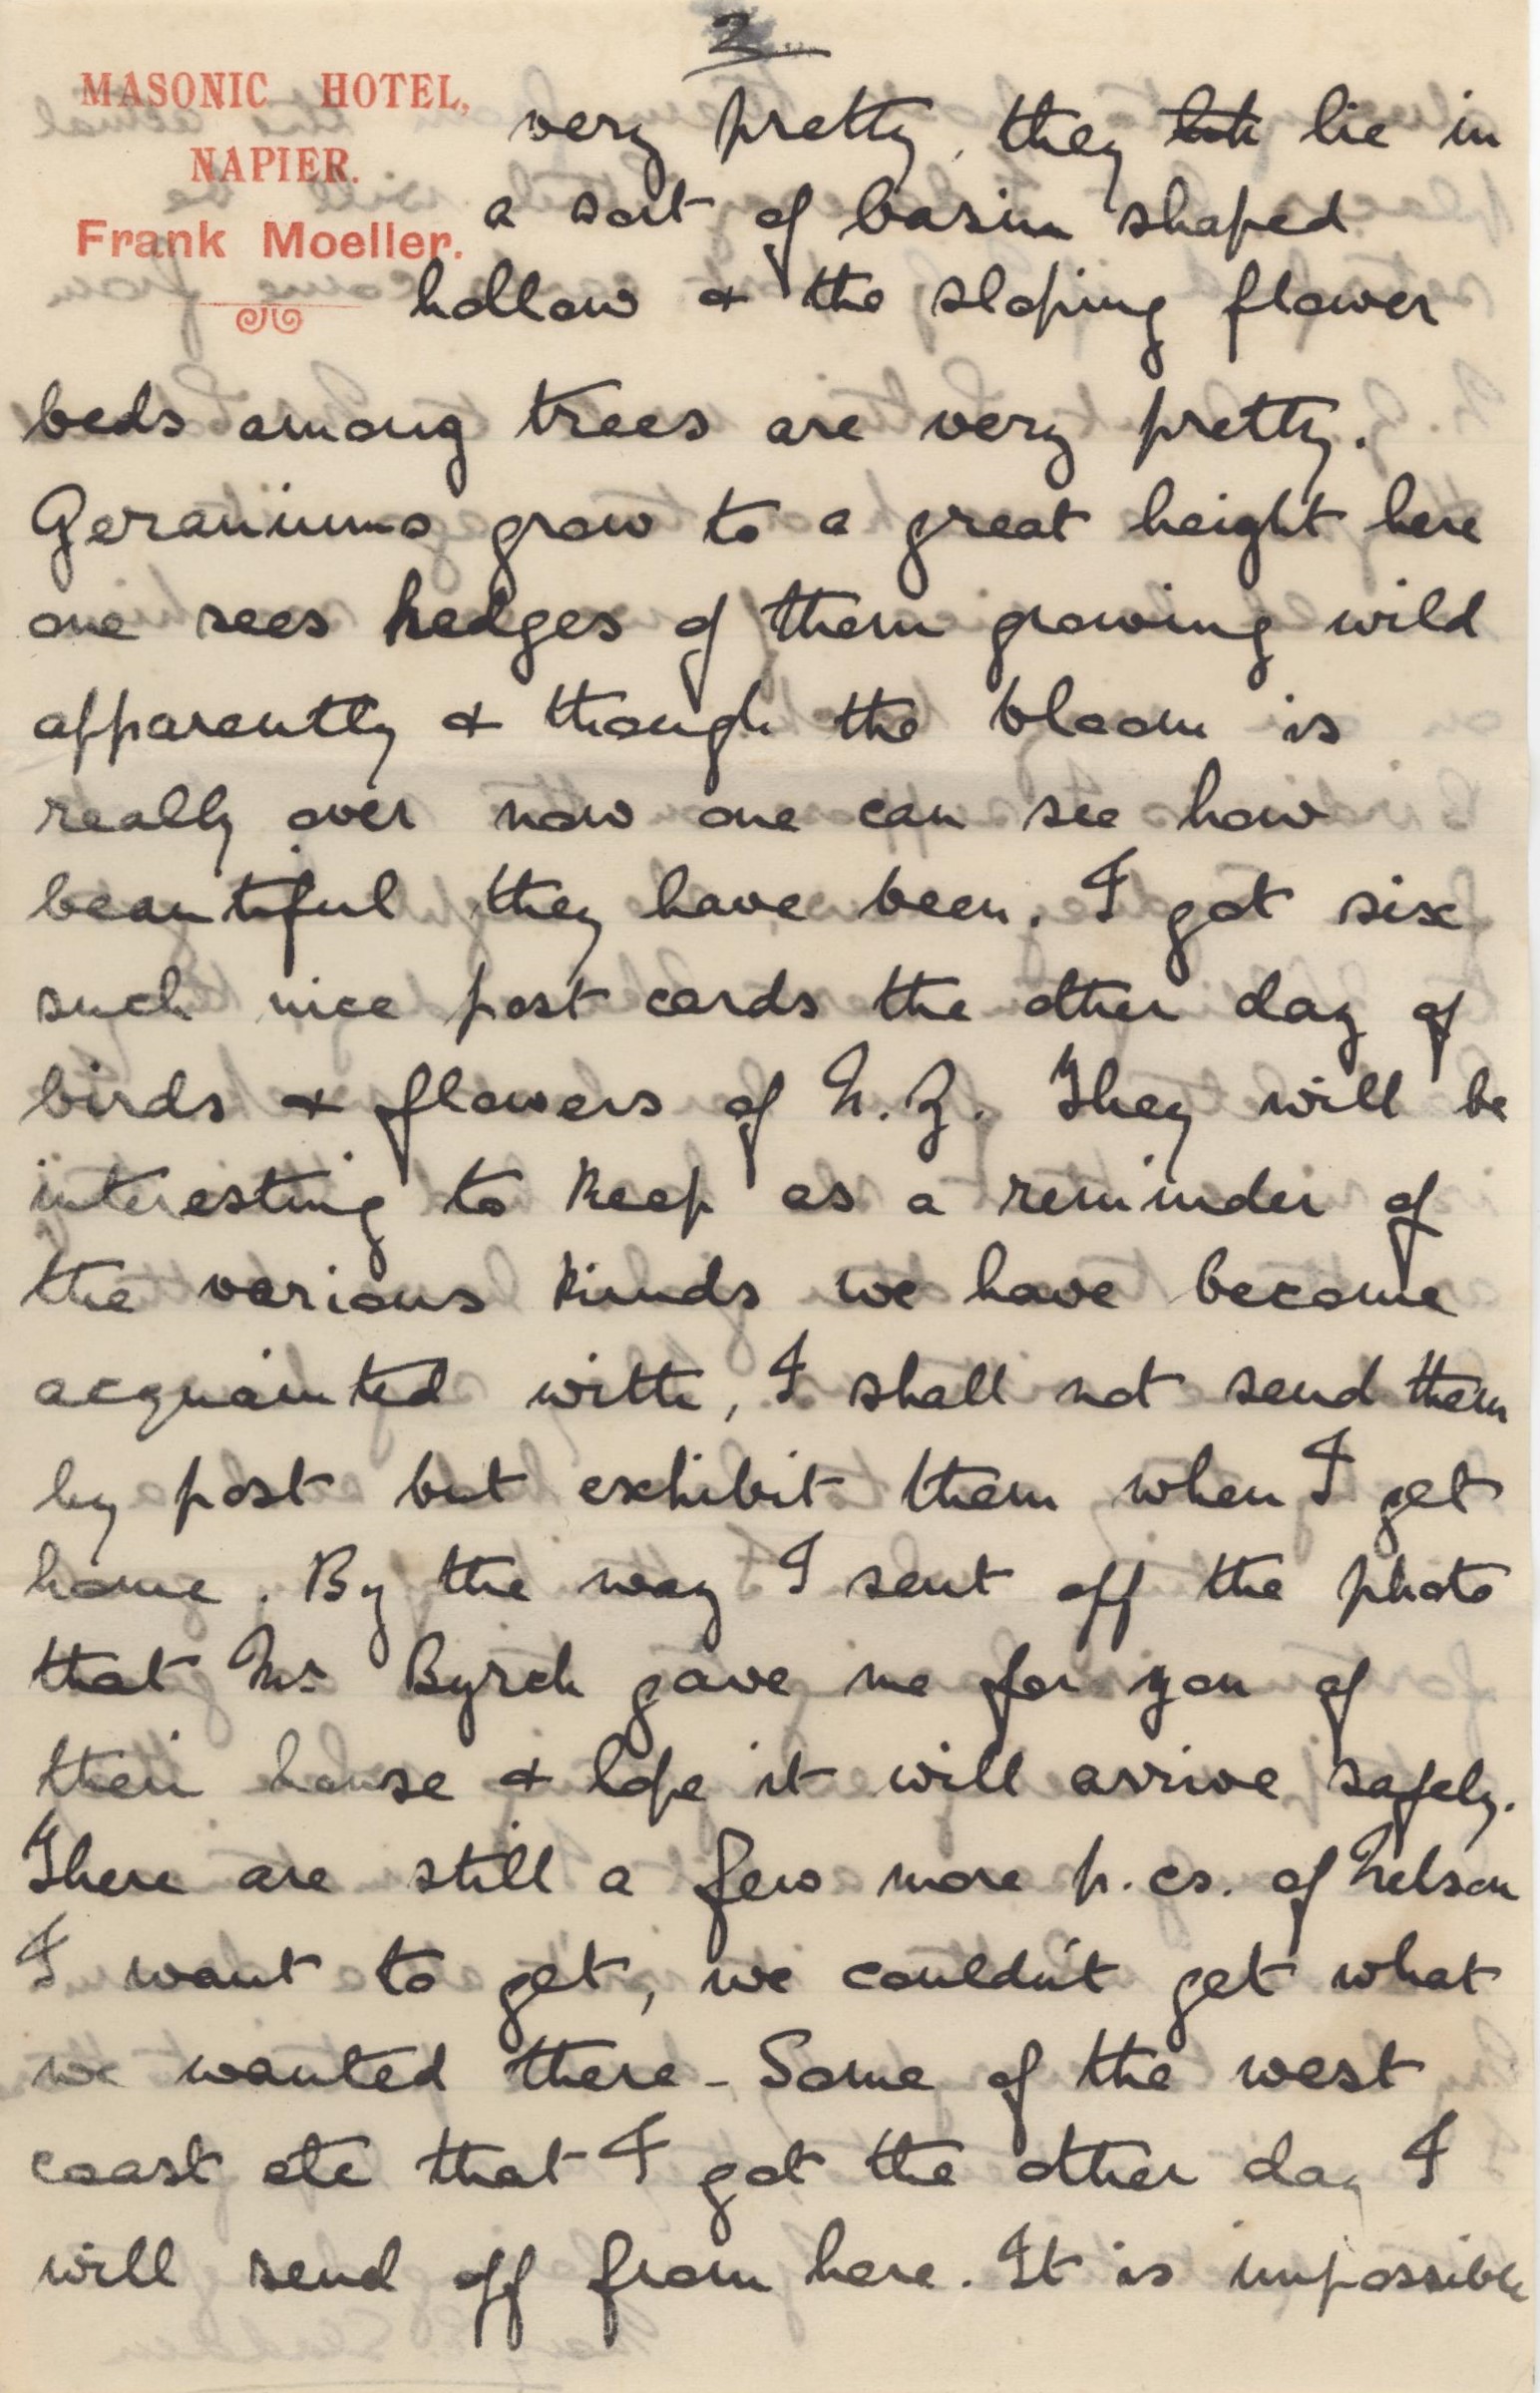 2
MASONIC HOTEL,
NAPIER.
Frank Moeller.
very pretty, they lie in
a sort of basin shaped
hollow & the sloping flower
beds among trees are very pretty.
Geraniums grow to a great height here
one sees hedges of them growing wild
apparently & though the bloom is
really over now one can see how
beautiful they have been. I got six
such nice post cards the other day of
birds & flowers of N.Z. They will be
interesting to keep as a reminder of
the various kinds we have become
acquainted with, I shall not send them
by post but exhibit them when I get
home. By the way I sent off the photo
that Mr Byrch gave me for you of
their house & hope it will arrive safely.
There are still a few more p.cs. of Nelson
I want to get, we couldn't get what
we wanted there - Some of the west
coast etc that I got the other day I
will send off from here. It is impossible